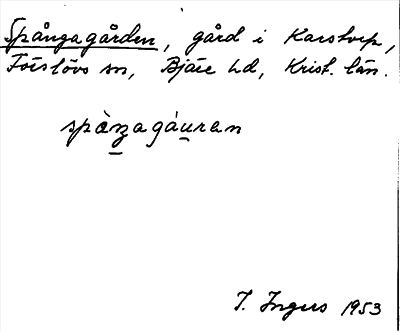 Spångagården, gård i Karstorp,
Förslövs sn, Bjäre hd, Krist. län.
spàŋagáuran
I. Ingers 1953